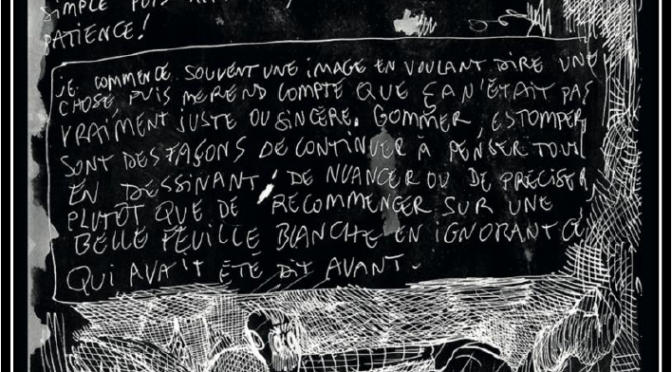 SIMPLE PUIS
PATIENCE!
JE COMMENCE SOUVENT UNE IMAGE EN VOULANT DIRE UNE
CHOSE, PUIS ME REND COMPTE QUE ÇA N'ÉTAIT PAS
VRAIMENT JUSTE OU SINCÈRE. GOMMER, ESTOMPER
SONT DES FAÇONS DE CONTINUER A PENSER TOUT
EN DESSINANT, DE NUANCER OU DE PRECISER,
PLUTÔT QUE DE RECOMMENCER SUR UNE
BELLE FEUILLE BLANCHE EN IGNORANT CE
QUI AVAIT ÉTÉ DIT AVANT.